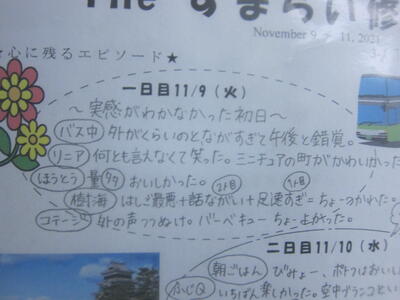 The すまらい修
November 9 ~ 11, 2021
心に残るエピソード★
一日目11/9(火)
~実感がわかなかった初日~
バス中 外がくらいのとながすぎて午後と錯覚。
リニア 何とも言えなくて笑った。ミニチュアの町がかわいかった
ほうとう 量多 おいしかった。
2人目 1人目
樹海 はしご最悪+話ながい+足速すぎ=ちょーつかれた。
コテージ 外の声つつぬけ。バーベキューちょー上がった。
二日目11/10(水)
朝ごはん びみょー、ポトフはおいし
ふじQ いちばん楽しかった。空中ブランコとい